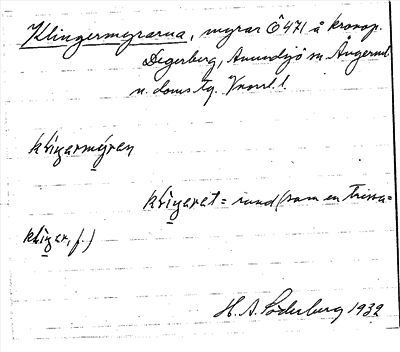 Klingermyrarna, myrar Ö 471 å kronop.
Degerberg, Anundsjö sn Ångerml.
n. doms tg. Vnorrl. l.
klingermýren
klingerat = rund (som en trissa =
klinger, f.)
H. A. Söderberg 1932